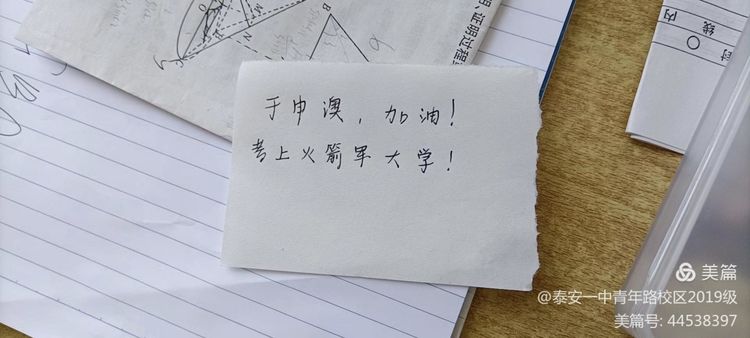 于申澳，加油！
考上火箭军大学！
证明过程
线内
封
B
M
N
美篇
@泰安一中青年路校区2019级
美篇号: 44538397